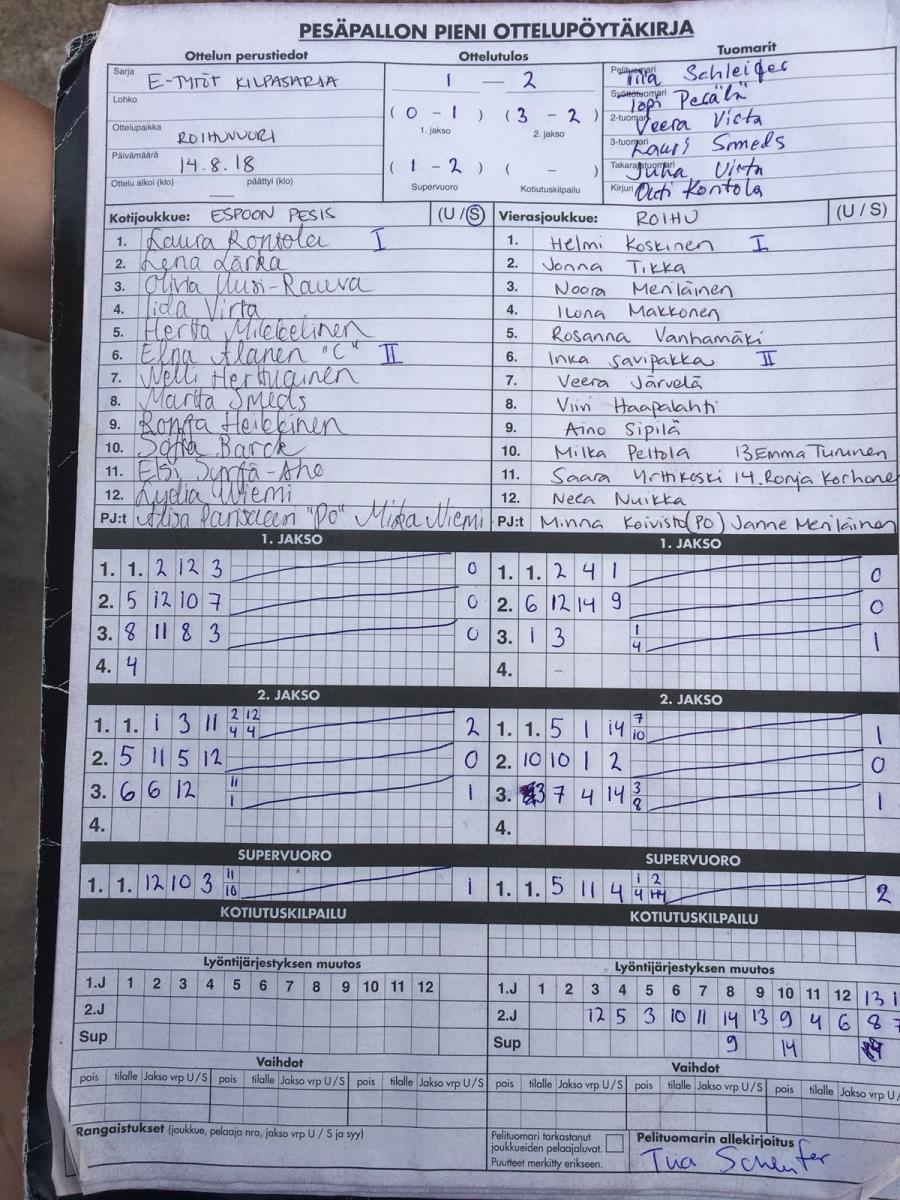 PESÄPALLON PIENI OTTELUPÖYTÄKIRJA
Ottelun perustiedot
Sarja E-TYTÖT KILPASARJA
Lohko
Ottelupaikka ROIHUVUORI
Päivämäärä 14.8.18
Ottelu alkoi (klo) päättyi (klo)
Ottelutulos
1 — 2
(0 - 1) (3 - 2)
1. jakso 2. jakso
(1 - 2) ( - )
Supervuoro Kotiutuskilpailu
Tuomarit
Pelituomari Tiia
Syöttötuomari Topi Perälä
2-tuomari Veera Virta
3-tuomari Lauri Smeds
Takarajatuomari Juha Virta
Kirjuri Outi Kontola
Kotijoukkue: ESPOON PESIS (U / S)
1. Laura Rontola I
2. Lena Lärka
3. Olivia Uusi-Rauva
4. Iida Virta
5. Hertta Mikkelinen
6. Elna Alanen "C" II
7. Nelli Herttuainen
8. Martta Smeds
9. Ronja Heikkinen
10. Sofia Barck
11. Elsi Syrjä-Aho
12. Lydia Niemi
PJ:t "PO" Miska Niemi
Vierasjoukkue: ROIHU (U / S)
1. Helmi Koskinen I
2. Jonna Tikka
3. Noora Meriläinen
4. Ilona Makkonen
5. Rosanna Vanhamäki
6. Inka Savipakka II
7. Veera Järvelä
8. Viivi Haapalahti
9. Aino Sipilä
10. Milka Peltola 13 Emma Turunen
11. Saara Yrttikoski 14. Ronja Korhone
12. Neea Nuikka
PJ:t Minna Koivisto (PO) Janne Meriläinen
1. JAKSO
1. 1. 2 12 3 0
2. 5 12 10 7 0
3. 8 11 8 3 0
4. 4
2. JAKSO
1. 1. 1 3 11 2 12 4 4 2
2. 5 11 5 12 0
3. 6 6 12 11 1 1
4.
SUPERVUORO
1. 1. 12 10 3 11 10 1
KOTIUTUSKILPAILU
Lyöntijärjestyksen muutos
1.J 1 2 3 4 5 6 7 8 9 10 11 12
2.J
Sup
Vaihdot
pois tilalle Jakso vrp U / S pois tilalle Jakso vrp U / S pois tilalle Jakso vrp U / S
Rangaistukset (joukkue, pelaaja nro, jakso vrp U / S ja syy)
1. JAKSO
1. 1. 2 4 1 0
2. 6 12 14 9 0
3. 1 3 1 4 1
4. -
2. JAKSO
1. 1. 5 1 14 7 10 1
2. 10 10 1 2 0
3. 3 7 4 14 3 8 1
4.
SUPERVUORO
1. 1. 5 11 4 1 2 4 14 2
KOTIUTUSKILPAILU
Lyöntijärjestyksen muutos
1.J 1 2 3 4 5 6 7 8 9 10 11 12 13 1
2.J 12 5 3 10 11 14 13 9 4 6 8 7
Sup 9 14
Vaihdot
pois tilalle Jakso vrp U / S pois tilalle Jakso vrp U / S pois tilalle Jakso vrp U /
Pelituomari tarkastanut
joukkueiden pelaajaluvat.
Puutteet merkitty erikseen.
Pelituomarin allekirjoitus
Tiia